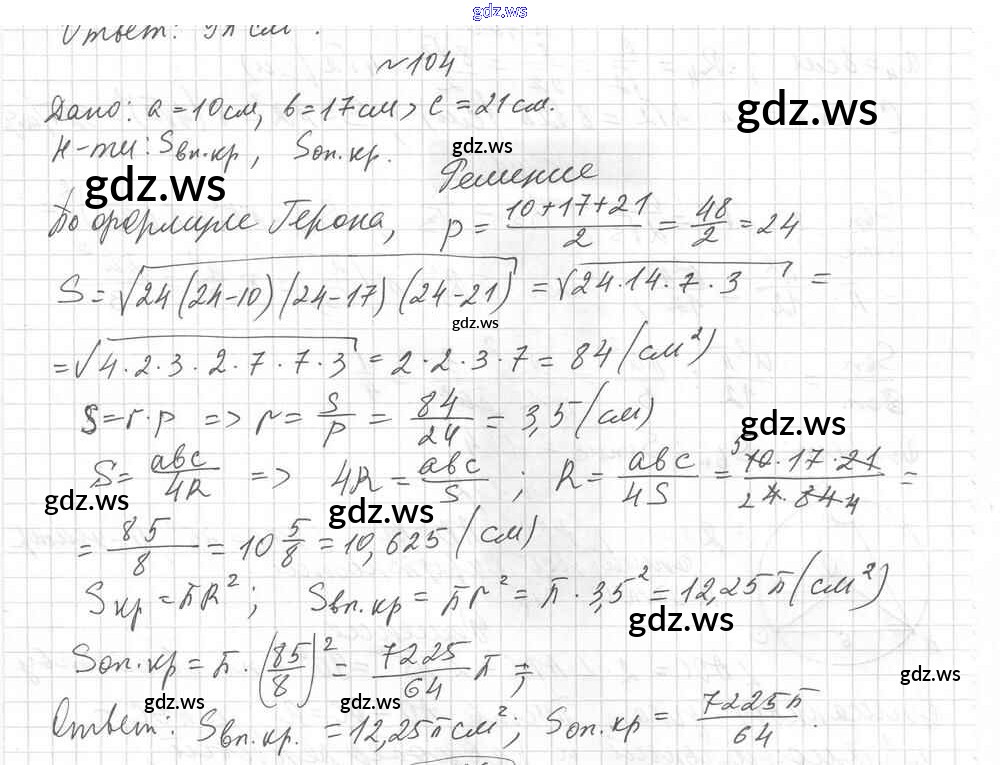 gdz.ws
Ответ: 9π см .
№104
Дано: a = 10 см, b = 17 см, c = 21 см.
gdz.ws
Н-ти: Sвп.кр, Sоп.кр.
gdz.ws
gdz.ws
Решение
По формуле Герона, p = (10+17+21)/2 = 48/2 = 24
S = √(24(24-10)(24-17)(24-21)) = √(24·14·7·3) =
gdz.ws
= √(4·2·3·2·7·7·3) = 2·2·3·7 = 84 (см²)
S = r·p => r = S/p = 84/24 = 3,5 (см)
gdz.ws
S = abc/4R => 4R = abc/S ; R = abc/4S = 5 10·17·21/2 4·84 4 =
gdz.ws
gdz.ws
= 85/8 = 10 5/8 = 10,625 (см)
Sкр = πR²; Sвп.кр = πr² = π·3,5² = 12,25π (см²)
gdz.ws
Sоп.кр = π·(85/8)² = 7225/64 π ;
gdz.ws
gdz.ws
gdz.ws
Ответ: Sвп.кр. = 12,25π см²; Sоп.кр = 7225π/64 .